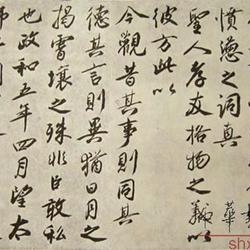 憤懣之詞真
聖人存交拾物之義以
彼方此以
今觀昔其事則同其
德其言則異猶日月之
揭霄壤之殊非日敢私
也政和五年四月望太
師
華
shx